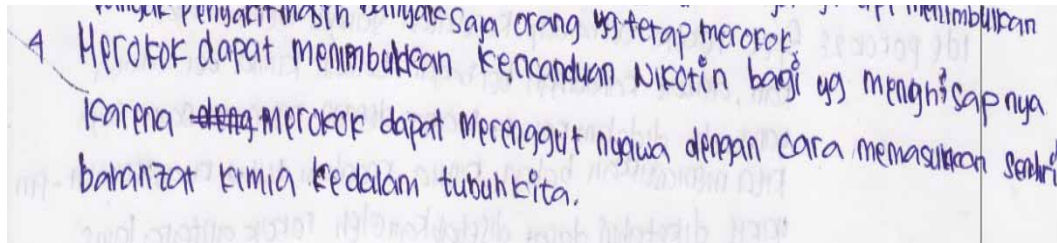 penyakit masih banyak saja orang yg tetap merokok. menimbulkan
4 Merokok dapat menimbulkan kencanduan Nikotin bagi yg menghisapnya
karena deng merokok dapat merenggut nyawa dengan cara memasukkan sendiri
baranzat kimia kedalam tubuh kita.